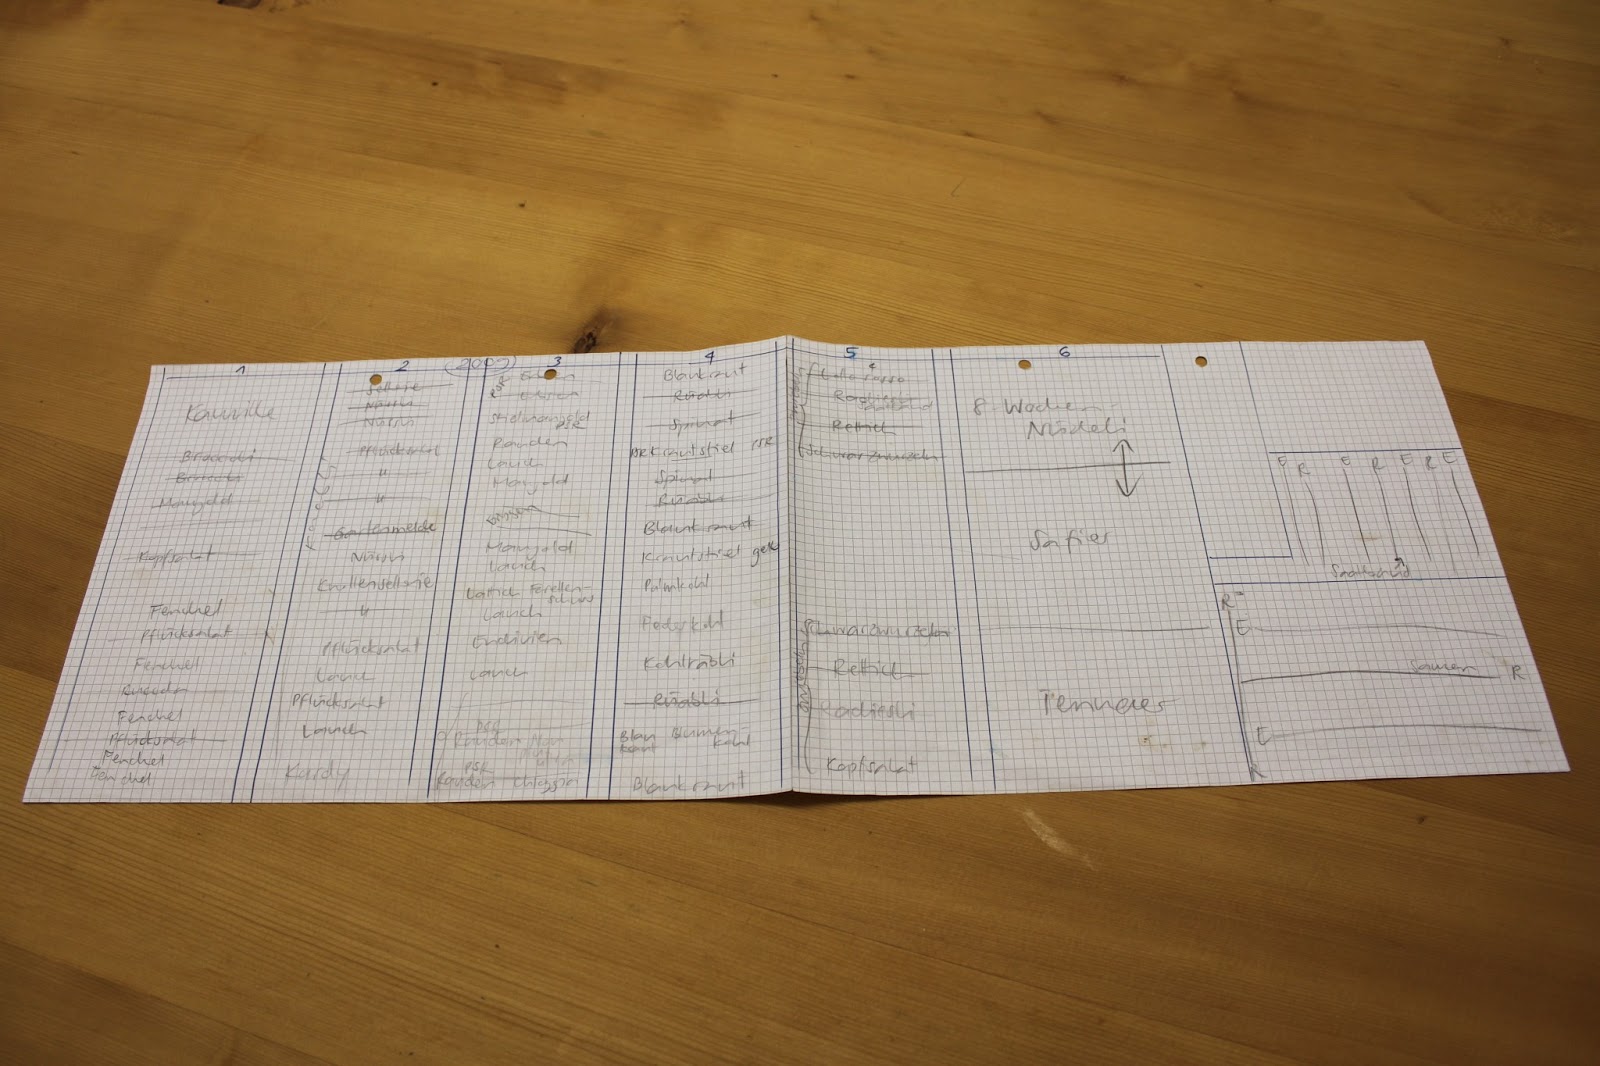 1
Kamille
Broccoli
Broccoli
Mangold
Kopfsalat
Fenchel
Pflücksalat
Fenchel
Fenchel
Pflücksalat
Fenchel
Fenchel
2
Sellerie
Nüssli
Nüssli
Pflücksalat
"
"
Gartenmelde
Nüssli
Knollensellerie
"
Pflücksalat
Lauch
Pflücksalat
Lauch
Kardy
(2009)
3
PSR
Erbsen
Erbsen
Stielmangold
PSR
Randen
Lauch
Mangold
Mangold
Lauch
Lattich Forellen-
schluss
Lauch
Endivien
Lauch
PSR
Randen
PSR
Randen Chioggia
4
Blaukraut
Rüebli
Spinat
Krautstiel PSR
Spinat
Rüebli
Blaukraut
Krautstiel gelb
Palmkohl
Federkohl
Kohlrabi
Rüebli
Blau Blumen
kraut kohl
Blaukraut
5
Rettich
Schwarzwurzeln
Schwarzwurzeln
Rettich
Radiesli
Kopfsalat
6
8-Wochen
Nüdeli
Safier
Temneres
E R E R E R E
R
E
Samen R
E
R